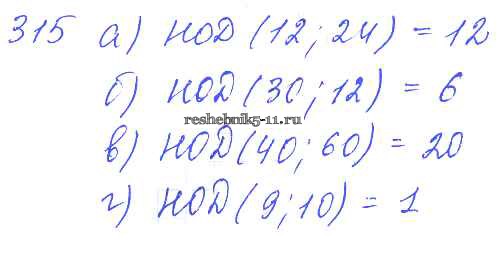 315 а) НОД (12; 24) = 12
б) НОД (30; 12) = 6
reshebnik5-11.ru
в) НОД (40; 60) = 20
г) НОД (9; 10) = 1